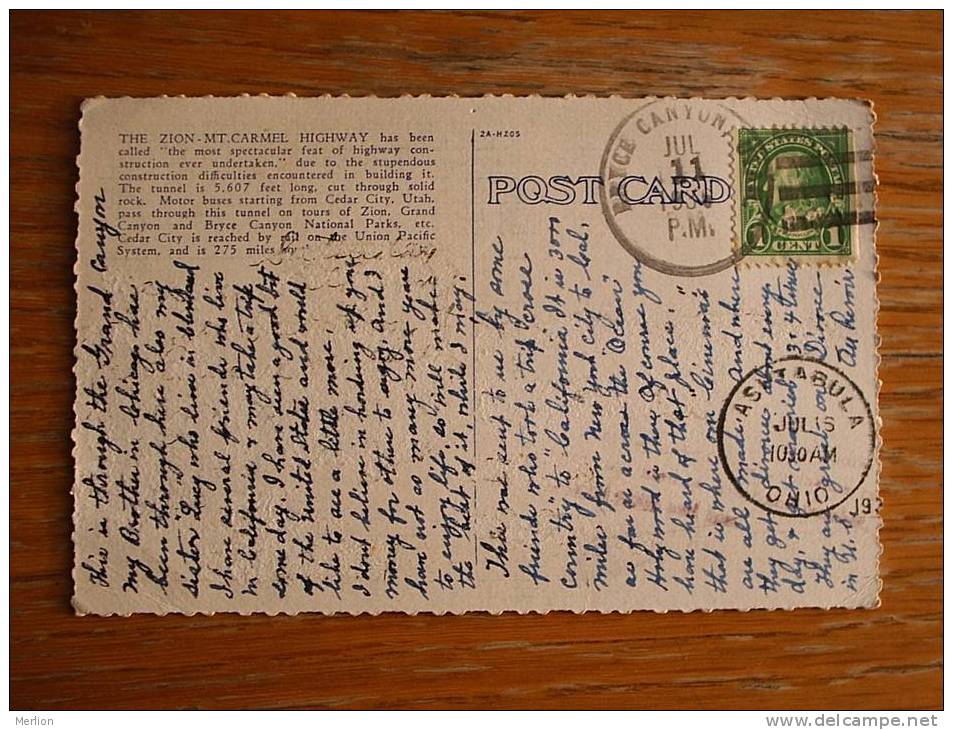 THE ZION-MT. CARMEL HIGHWAY has been
called "the most spectacular feat of highway con-
struction ever undertaken," due to the stupendous
construction difficulties encountered in building it.
The tunnel is 5,607 feet long, cut through solid
rock. Motor buses starting from Cedar City, Utah,
pass through this tunnel on tours of Zion, Grand
Canyon and Bryce Canyon National Parks, etc.
Cedar City is reached by rail on the Union Pacific
System, and is 275 miles
2A-H205
POST CARD
BRYCE CANYON,
JUL
11
P.M.
UNITED STATES POSTAGE
1 CENT 1
ASHTABULA
JUL 15
1000AM
OHIO
193
This is through the Grand Canyon
My Brother in Chicago has
been through here also my
sister Lucy who lives in
I have several friends who live
in California & may take a trip
some day. I have seen a good bit
of the United States and would
like to see a little more.
I dont believe in hording up your
money for others to enjoy. And I
have not so many more years
to enjoy life, so will make
the best of it, while I may.
This was sent to us by some
friends who took a trip "cross
country" to California It is 3000
miles from New York city to Cal,
as far as across the "Ocean"
Holywood is there Of course you
have heard of that "place."
that is where our Cinemas
are all made. And where
they get divorce
&
They
in U.S.
Merlion
www.delcampe.net